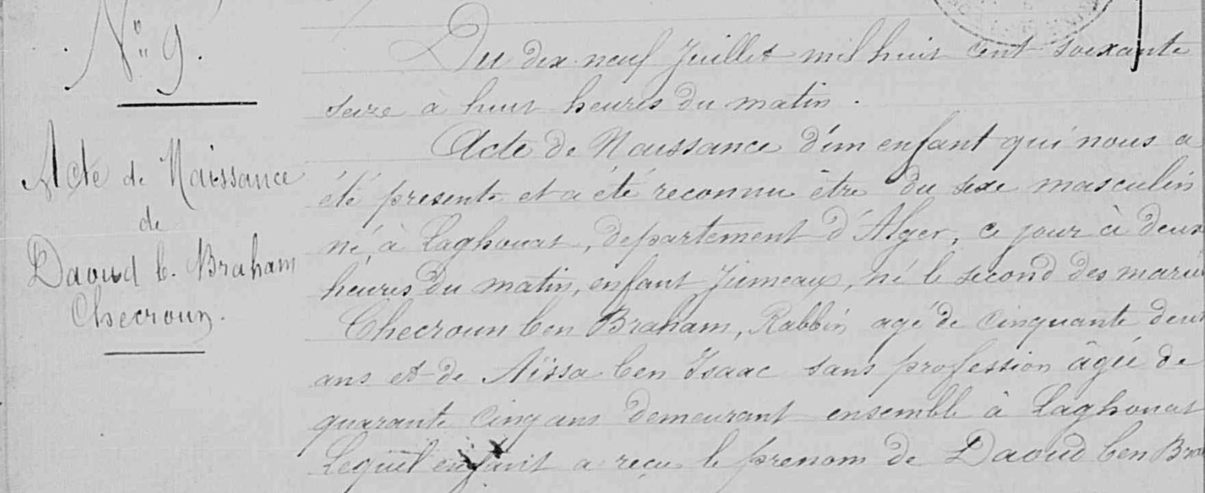 N° 9.
Acte de Naissance
de
Daoud b. Braham
Checroun.
Du dix neuf Juillet mil huit cent soixante
seize à huit heures du matin.
Acte de Naissance d'un enfant qui nous a
été présenté et a été reconnu être du sexe masculin
né, à Laghouat, département d'Alger, ce jour à deux
heures du matin, enfant Jumeaux, né le second des marié
Checroun ben Braham, Rabbin agé de cinquante deux
ans et de Aïssa ben Isaac sans profession âgée de
quarante cinq ans demeurant ensemble à Laghouat
Lequel enfant a reçu le prenom de Daoud ben Bra